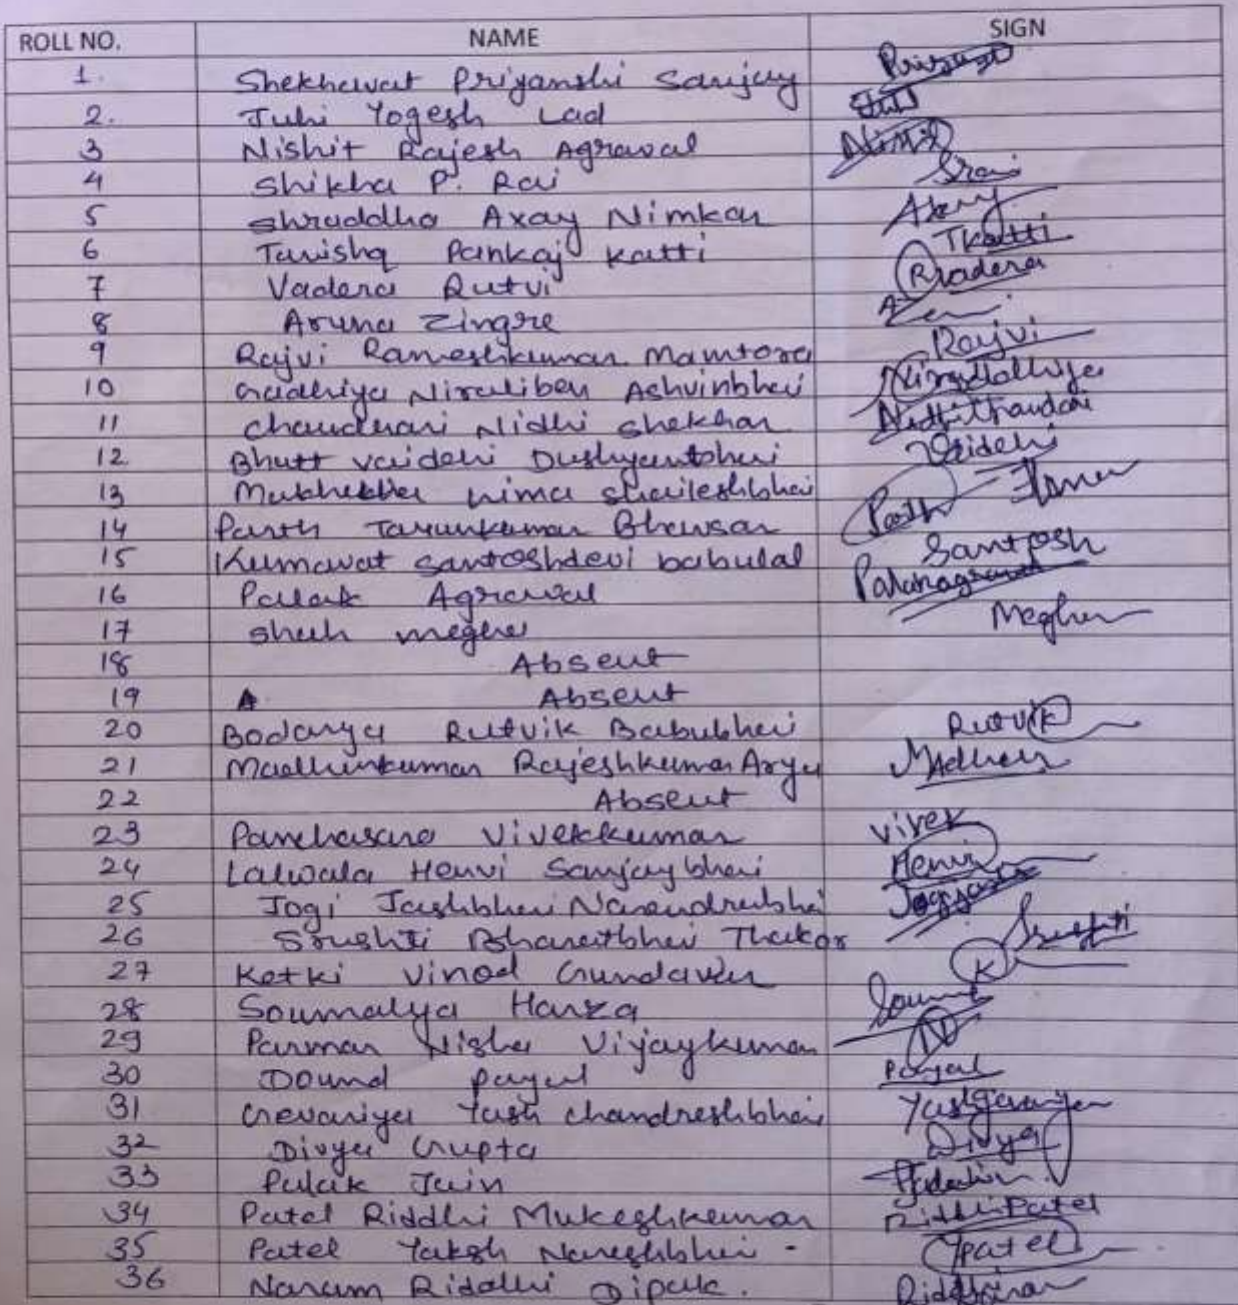 ROLL NO. NAME SIGN
1. Shekhawat Priyanshi Sanjay
2. Juhi Yogesh Lad
3 Nishit Rajesh Agrawal
4 Shikha P. Rai Srai
5 Shraddha Axay Nimkar
6 Tanishq Pankaj Katti Tkatti
7 Vadera Rutvi Rvadera
8 Aruna Zingre
9 Rajvi Rameshkumar Mamtora Rajvi
10 Gadhiya Niraliben Ashvinbhai
11 Chaudhari Nidhi Shekhar
12 Bhatt Vaidehi Dushyantbhai Vaidehi
13 Shaileshbhai
14 Parth Tarunkumar Bhavsar Parth
15 Kumawat Santoshdevi babulal Santosh
16 Palak Agrawal
17 Shah megha Megha
18 Absent
19 A Absent
20 Bodarya Rutvik Babubhai Rutvik
21 Rajeshkumar Arya
22 Absent
23 Panchasara Vivekkumar vivek
24 Lalwala Henvi Sanjaybhai Henvi
25 Jogi Jashbhai Narendrabhai
26 Srushti Bharatbhai Thakor Srushti
27 Ketki Vinod K
28 Soumalya Hanza
29 Parmar Nisha Vijaykumar N
30 Dound payal Payal
31 Gevariya Yash Chandreshbhai
32 Divya Gupta Divya
33 Palak Jain
34 Patel Riddhi Mukeshkumar Riddhi Patel
35 Patel Yaksh Nareshbhai - Ypatel
36 Naram Riddhi Dipak.